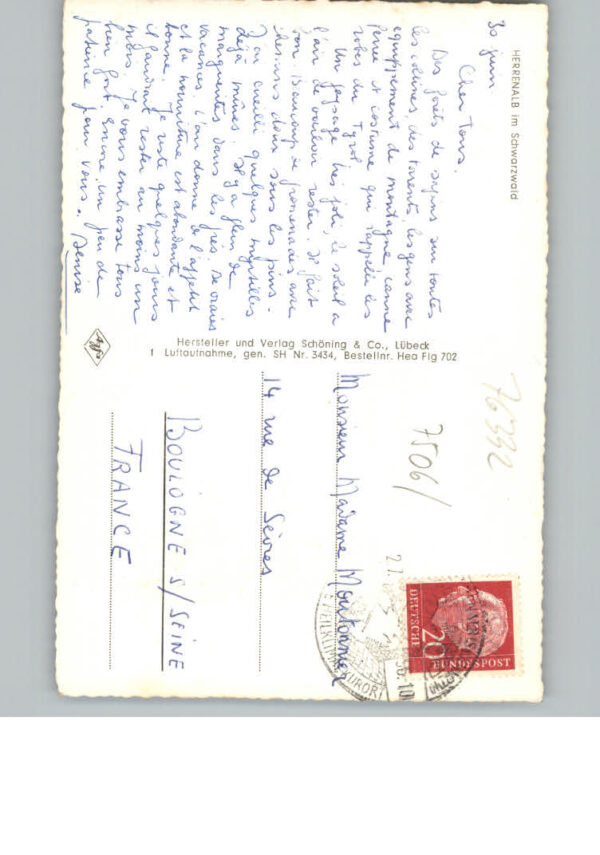 HERRENALB im Schwarzwald
30 juin
Chers Tous.
Des forêts de sapins sur toutes
les collines, des torrents, les gens avec
équippement de montagne, canne
ferrée et costume qui rappelle les
robes du Tyrol.
Un paysage très joli, le soleil a
l'air de vouloir rester. Il fait
bon. Beaucoup de promenades avec
dessus doux sous les pins.
J'ai cueilli quelques myrtilles
déjà mûres. Il y a plein de
marguerites dans les prés. De vraies
vacances. L'air donne de l'appétit
et la nourriture est abondante et
bonne. Je reste quelques jours
il faudrait rester au moins un
mois. Je vous embrasse tous
bien fort, encore un peu de
patience pour vous.. Denise
Agfa
Hersteller und Verlag Schöning & Co., Lübeck
f Luftaufnahme, gen. SH Nr. 3434, Bestellnr. Hea Flg 702
76332
7506/
Monsieur Madame Moutonnier
14 rue de Sèvres
BOULOGNE S/SEINE
FRANCE
DEUTSCHE
BUNDESPOST
20
HEILKLIMA KURORT